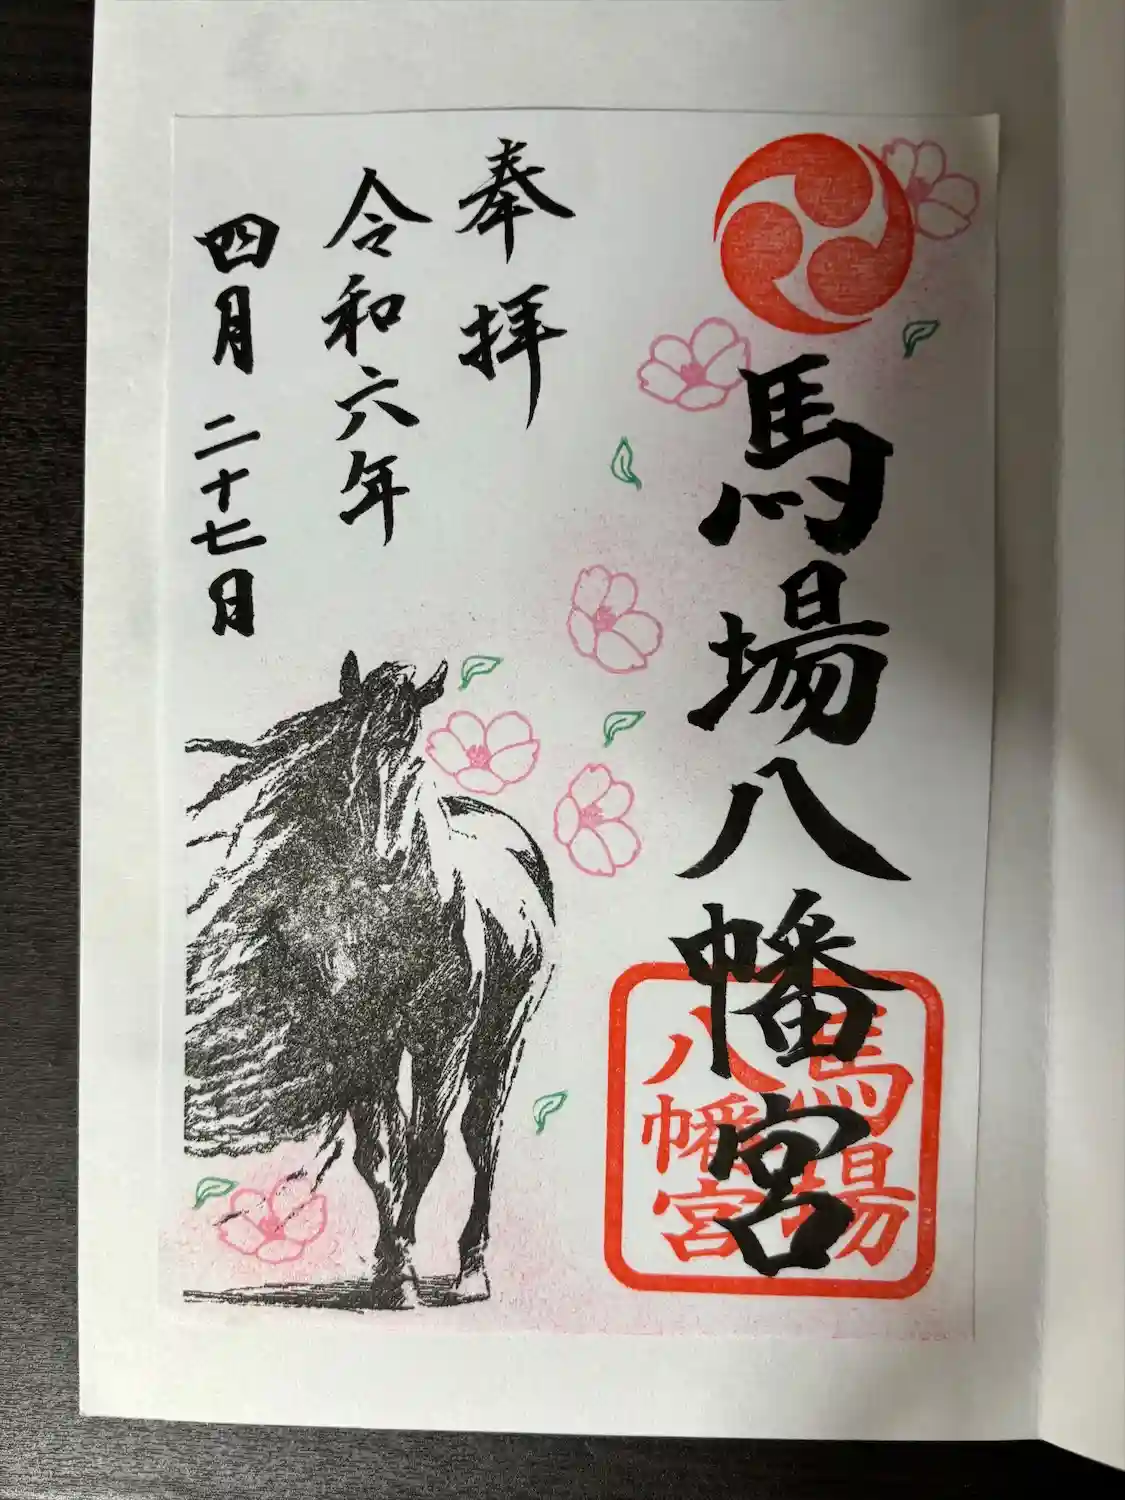 馬場八幡宮
馬場
八幡宮
奉拝
令和六年
四月二十七日